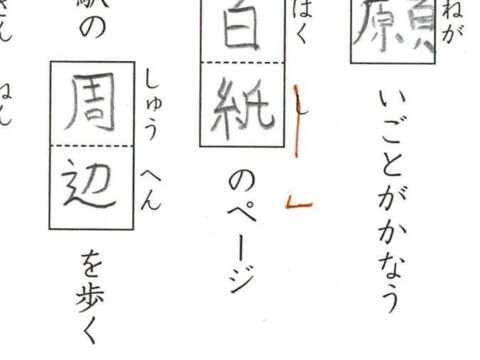 ねが
願いごとがかなう
はく し
白紙のページ
しゅう へん
駅の周辺を歩く